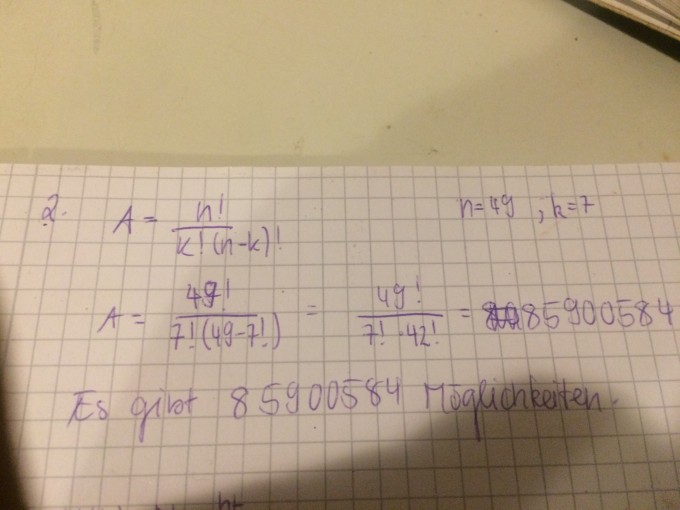 2. A = n! / k!(n-k)! n=49, k=7
A = 49! / 7!(49-7!) = 49! / 7! · 42! = 85900584
Es gibt 85900584 Möglichkeiten.